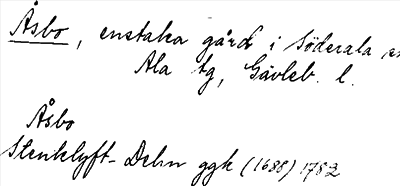 Åsbo, enstaka gård i Söderala
Ala tg, Gävleb. l.
Åsbo
Stenklyft-Dehn ggk (1688) 1782